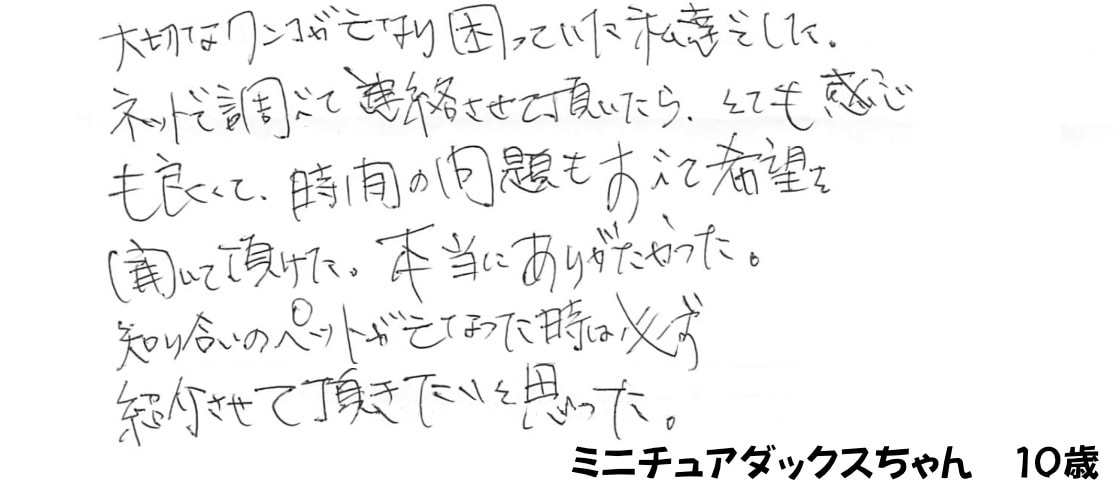 大切なワンコが亡なり困っていた私達でした。
ネットで調べて連絡させて頂いたら、とても感じ
も良くて、時間の問題もすべて希望を
聞いて頂けた。本当にありがたかった。
知り合いのペットが亡なった時は必ず
紹介させて頂きたいと思った。
ミニチュアダックスちゃん　10歳